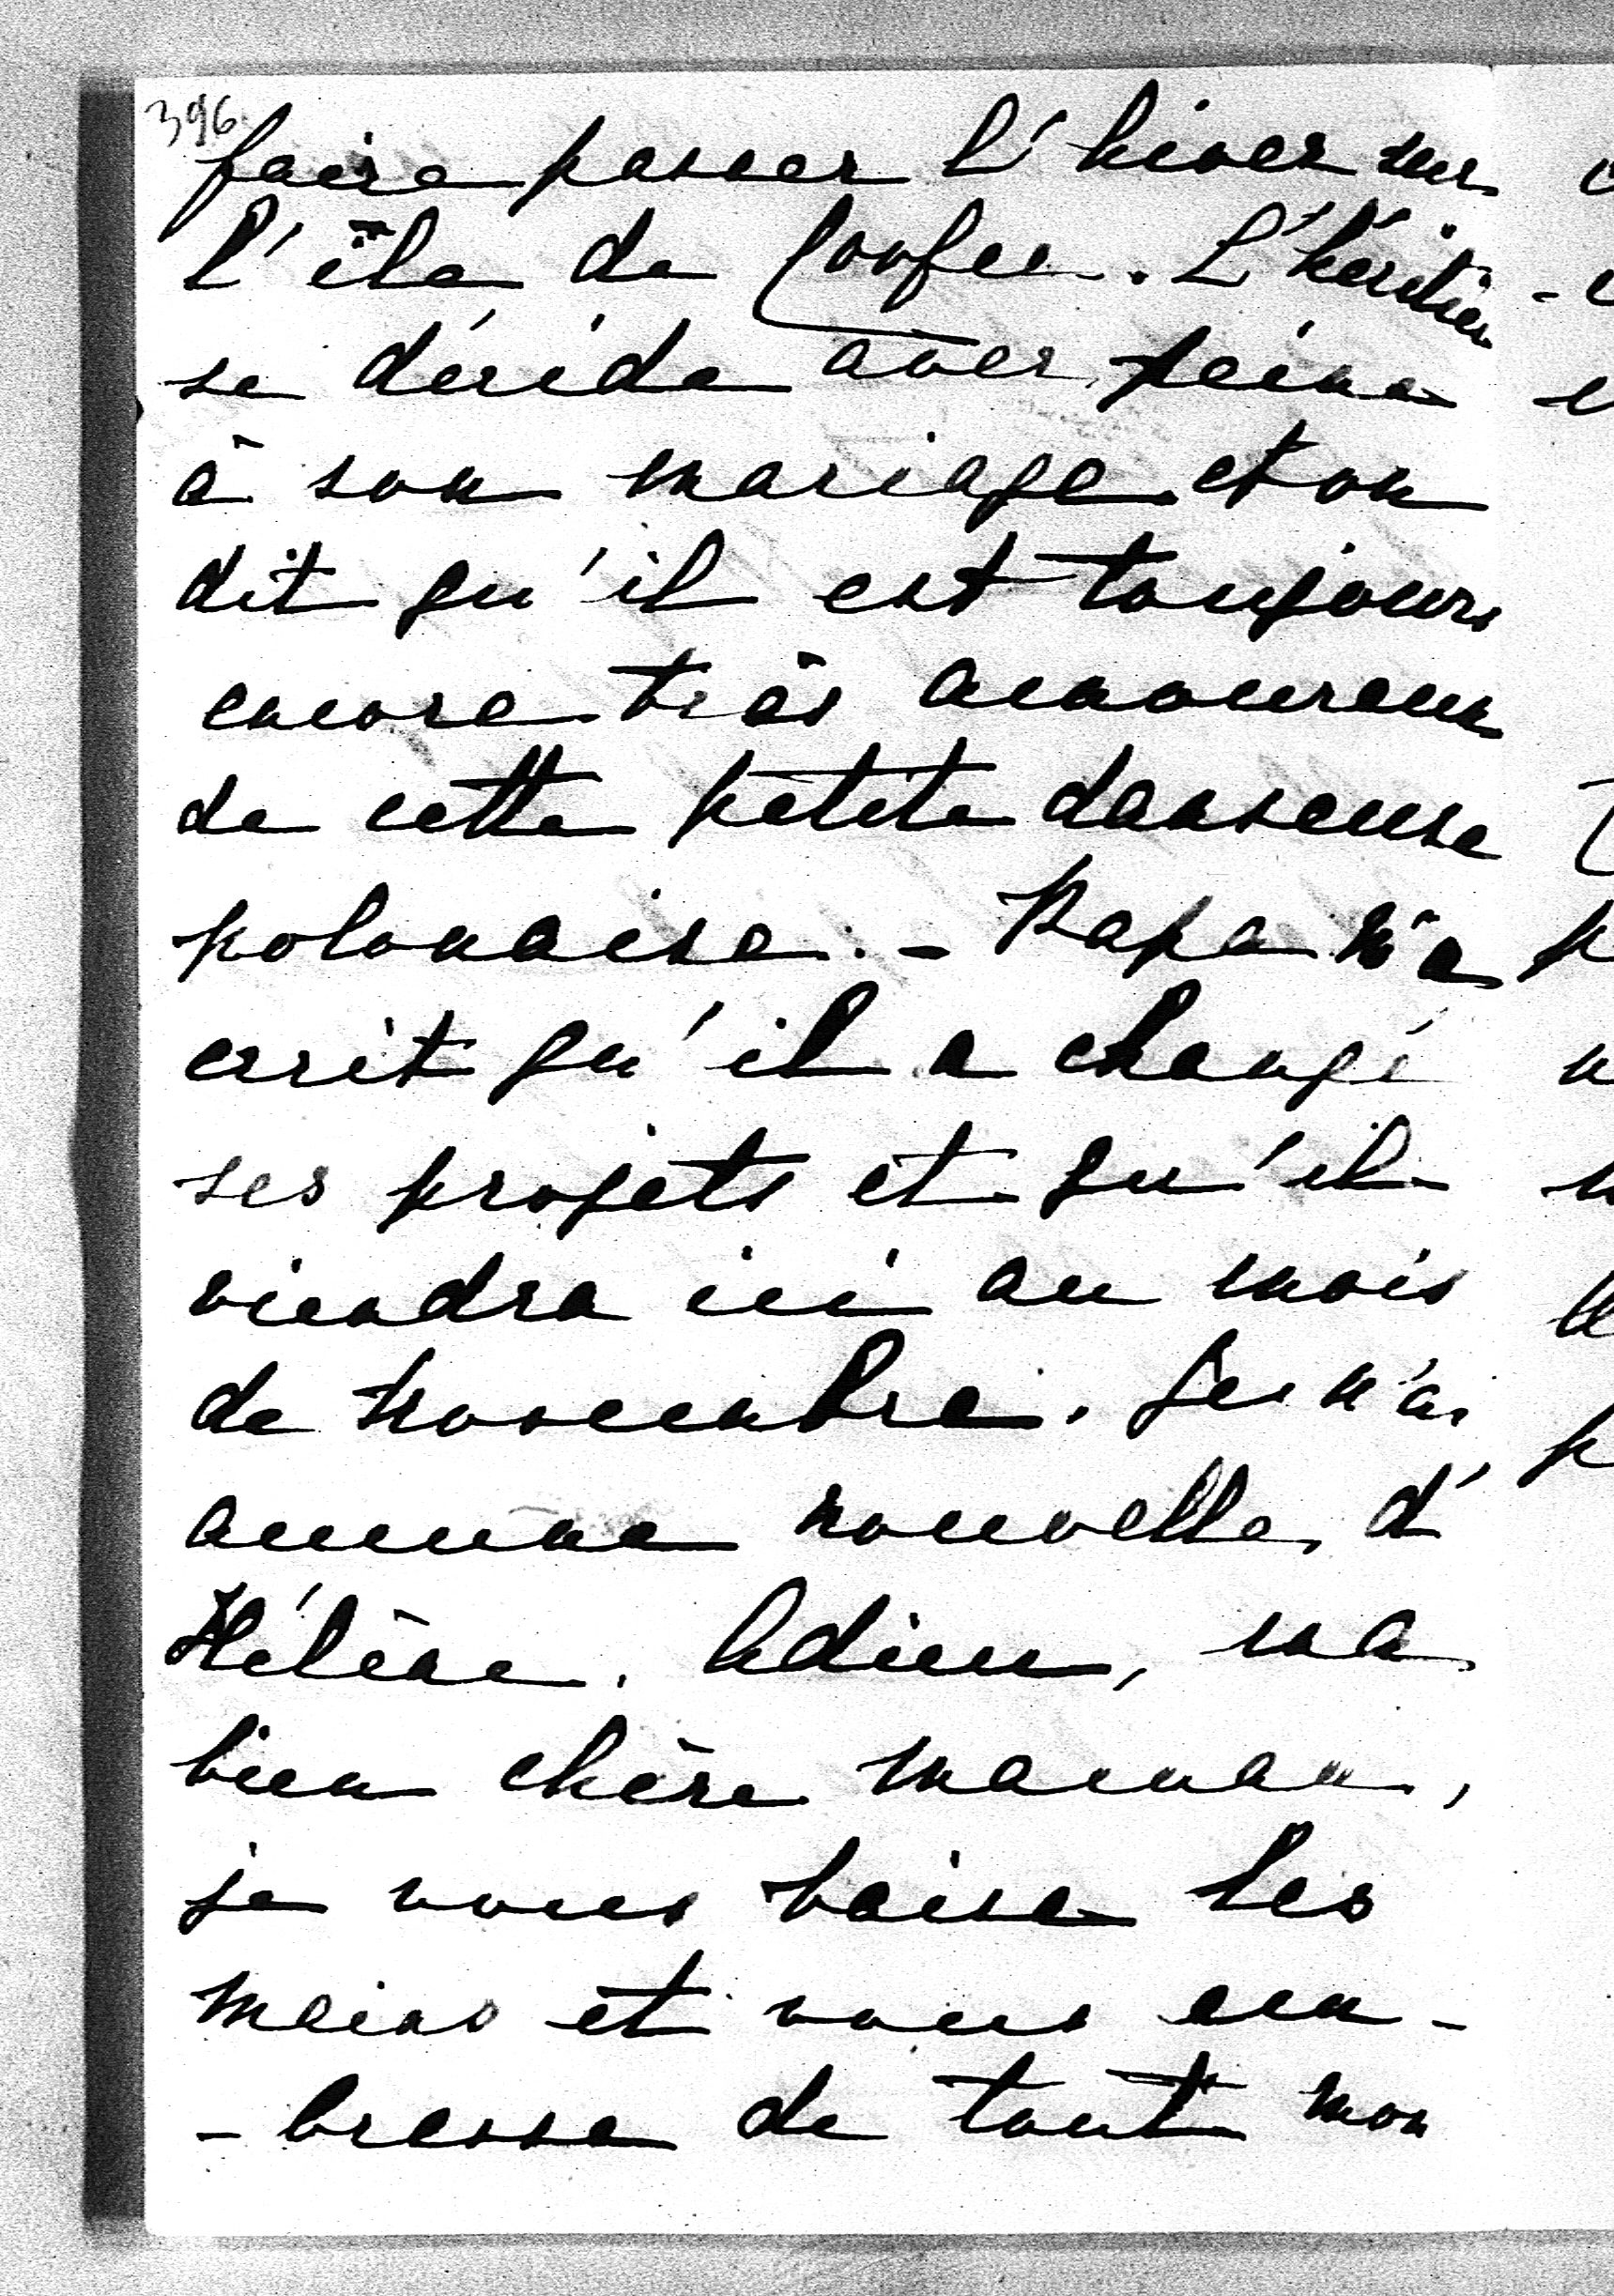 396.
faire passer l'hiver sur
l'île de Corfee. L'héritier
se décide avec peine
à son mariage et on
dit qu'il est toujours
encore très amoureux
de cette petite danseuse
polonaise. - Papa m'a
ecrit qu'il a changé
ses projets et qu'il
viendra ici au mois
de Novembre. Je n'ai
aucune nouvelle d'
Hélène. Adieu, ma
bien chère maman,
je vous baise les
mains et vous em-
-brasse de tout mon